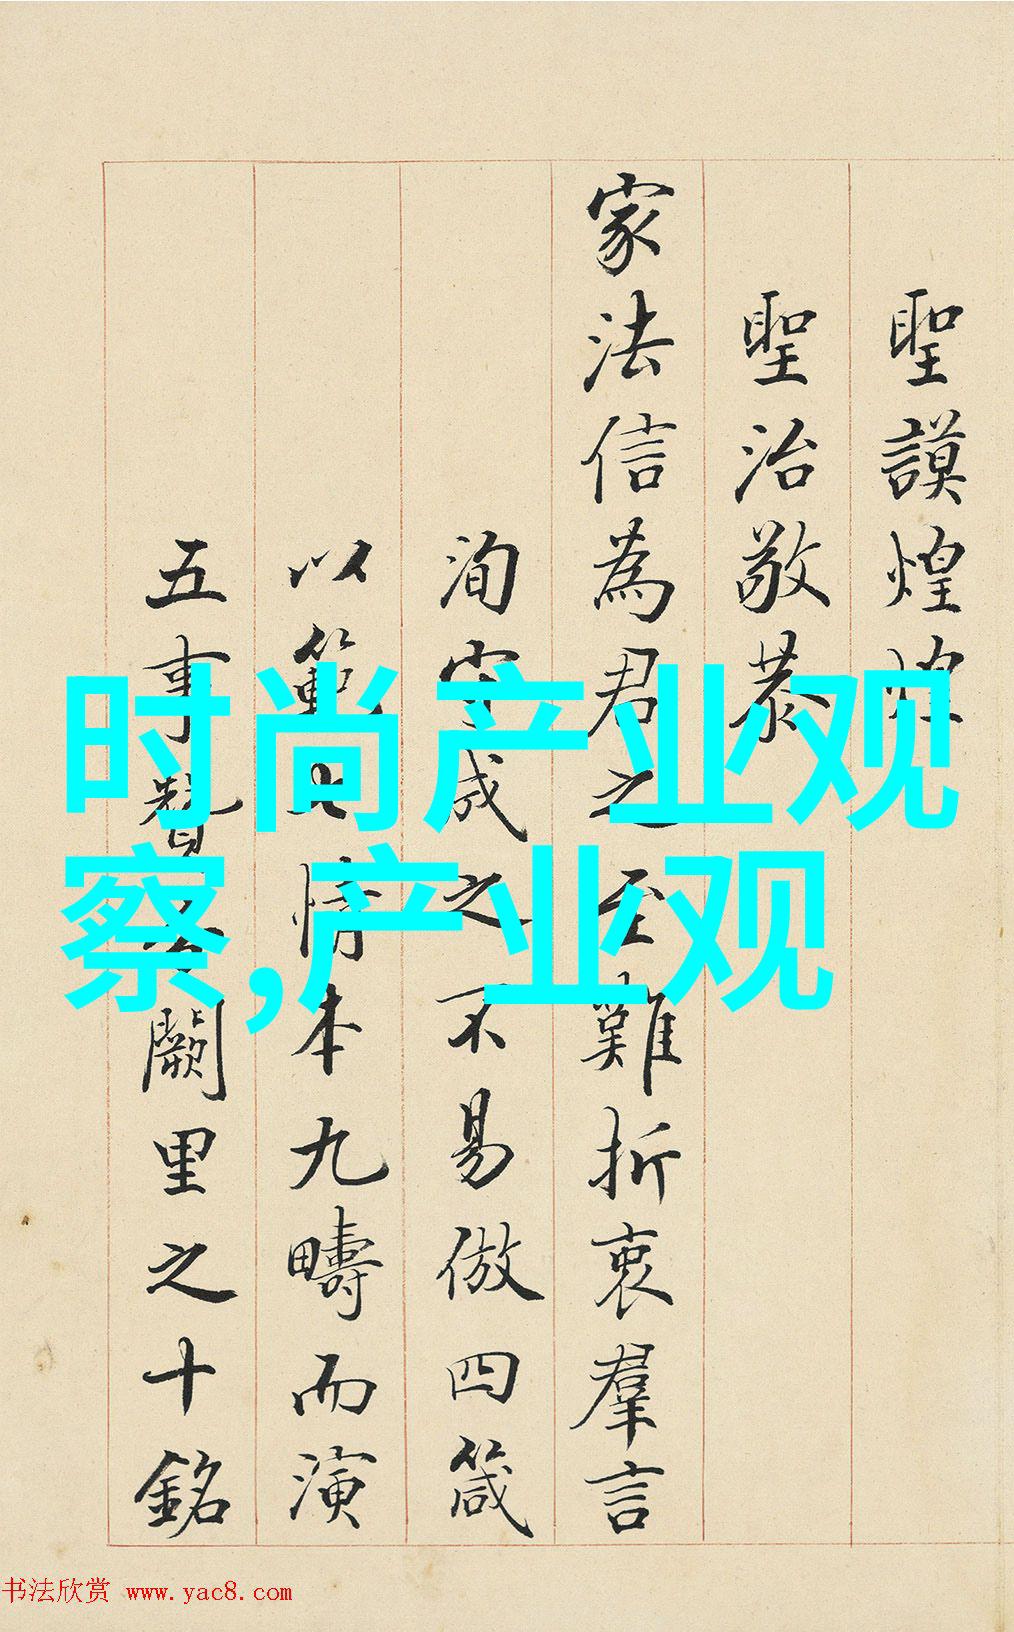 聖謨煌煌
聖治敬恭
家法信為君之至難折衷羣言
洵守成之不易倣四箴
以範七情本九疇而演
五事贊闕里之十銘
时尚产业观
察,产业观
书法欣赏 www.yac8.com